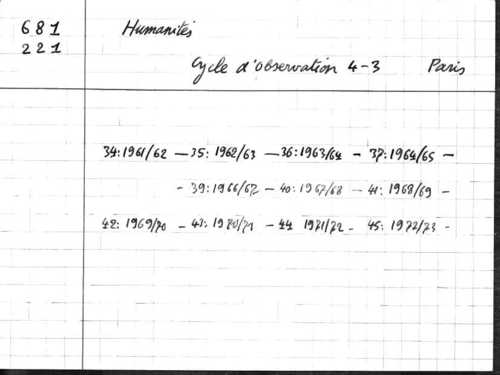 681 Humanités
221
Cycle d'observation 4-3 Paris
34: 1961/62 — 35: 1962/63 — 36: 1963/64 - 37: 1964/65 -
- 39: 1966/67 - 40: 1967/68 - 41: 1968/69 -
42: 1969/70 - 43: 1970/71 - 44 1971/72 - 45: 1972/73 -